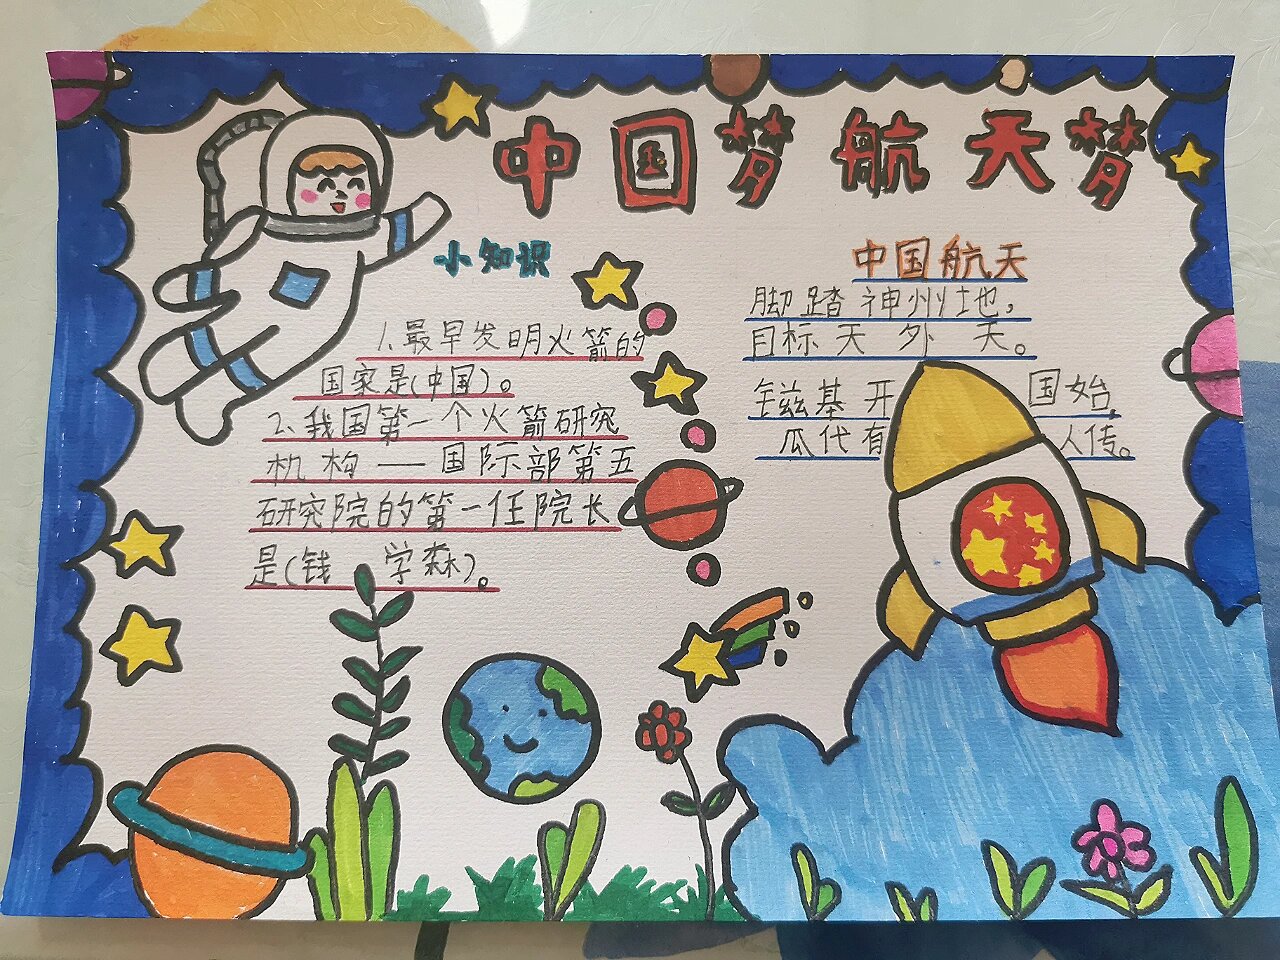 中国梦 航天梦
小知识
1.最早发明火箭的
国家是(中国)。
2、我国第一个火箭研究
机构——国际部第五
研究院的第一任院长
是(钱 学森)。
中国航天
脚踏神州地,
目标天外天。
镃基开 国始,
瓜代有 人传。